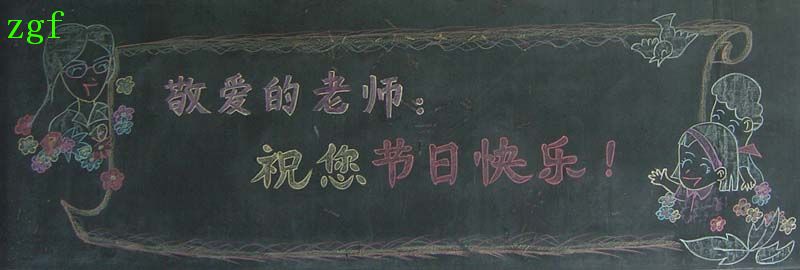 zgf
敬爱的老师：
祝您节日快乐！